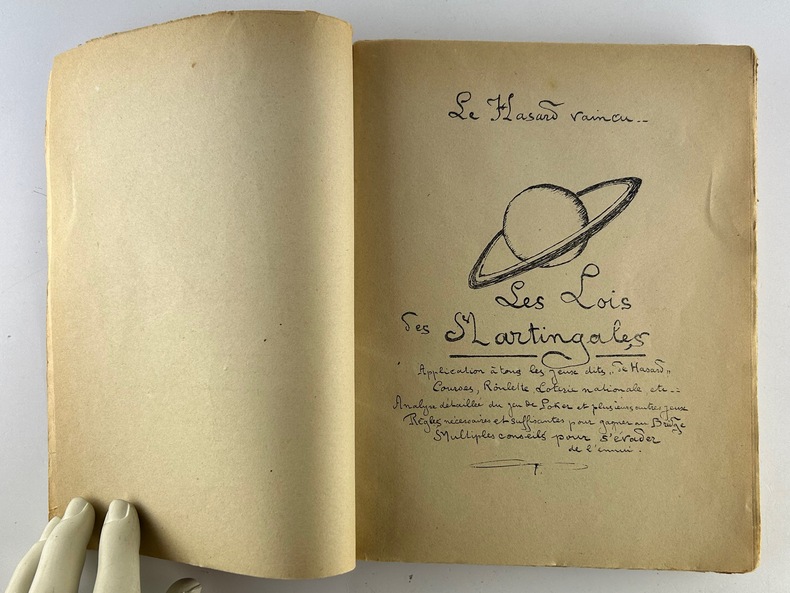 Le Hasard vaincu..
Les Lois
des Martingales
Application à tous les jeux dits „de Hasard„
Courses, Roulette Loterie nationale etc...
Analyse détaillée du jeu de Poker et plusieurs autres jeux
Règles nécessaires et suffisantes pour gagner au Bridge
Multiples conseils pour s'évader
de l'ennui.